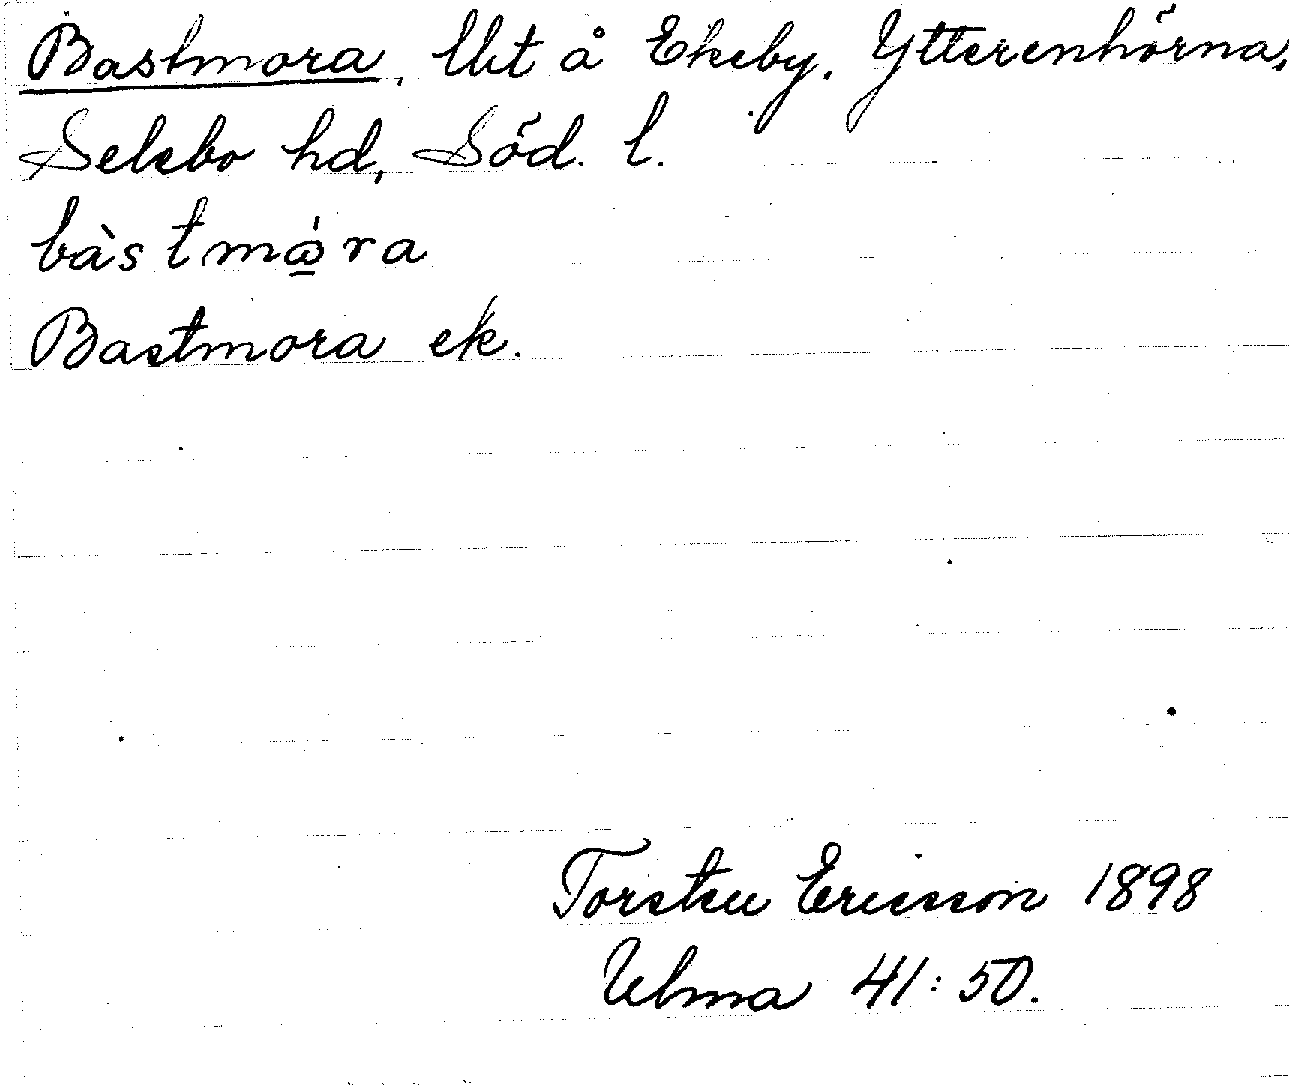 Bastmora, Utt å Ekeby, Ytterenhörna,
Selebo hd, Söd. l.
bàstmώ̲ra
Bastmora ek.
Torsten Ericsson 1898
Ulma 41:50.